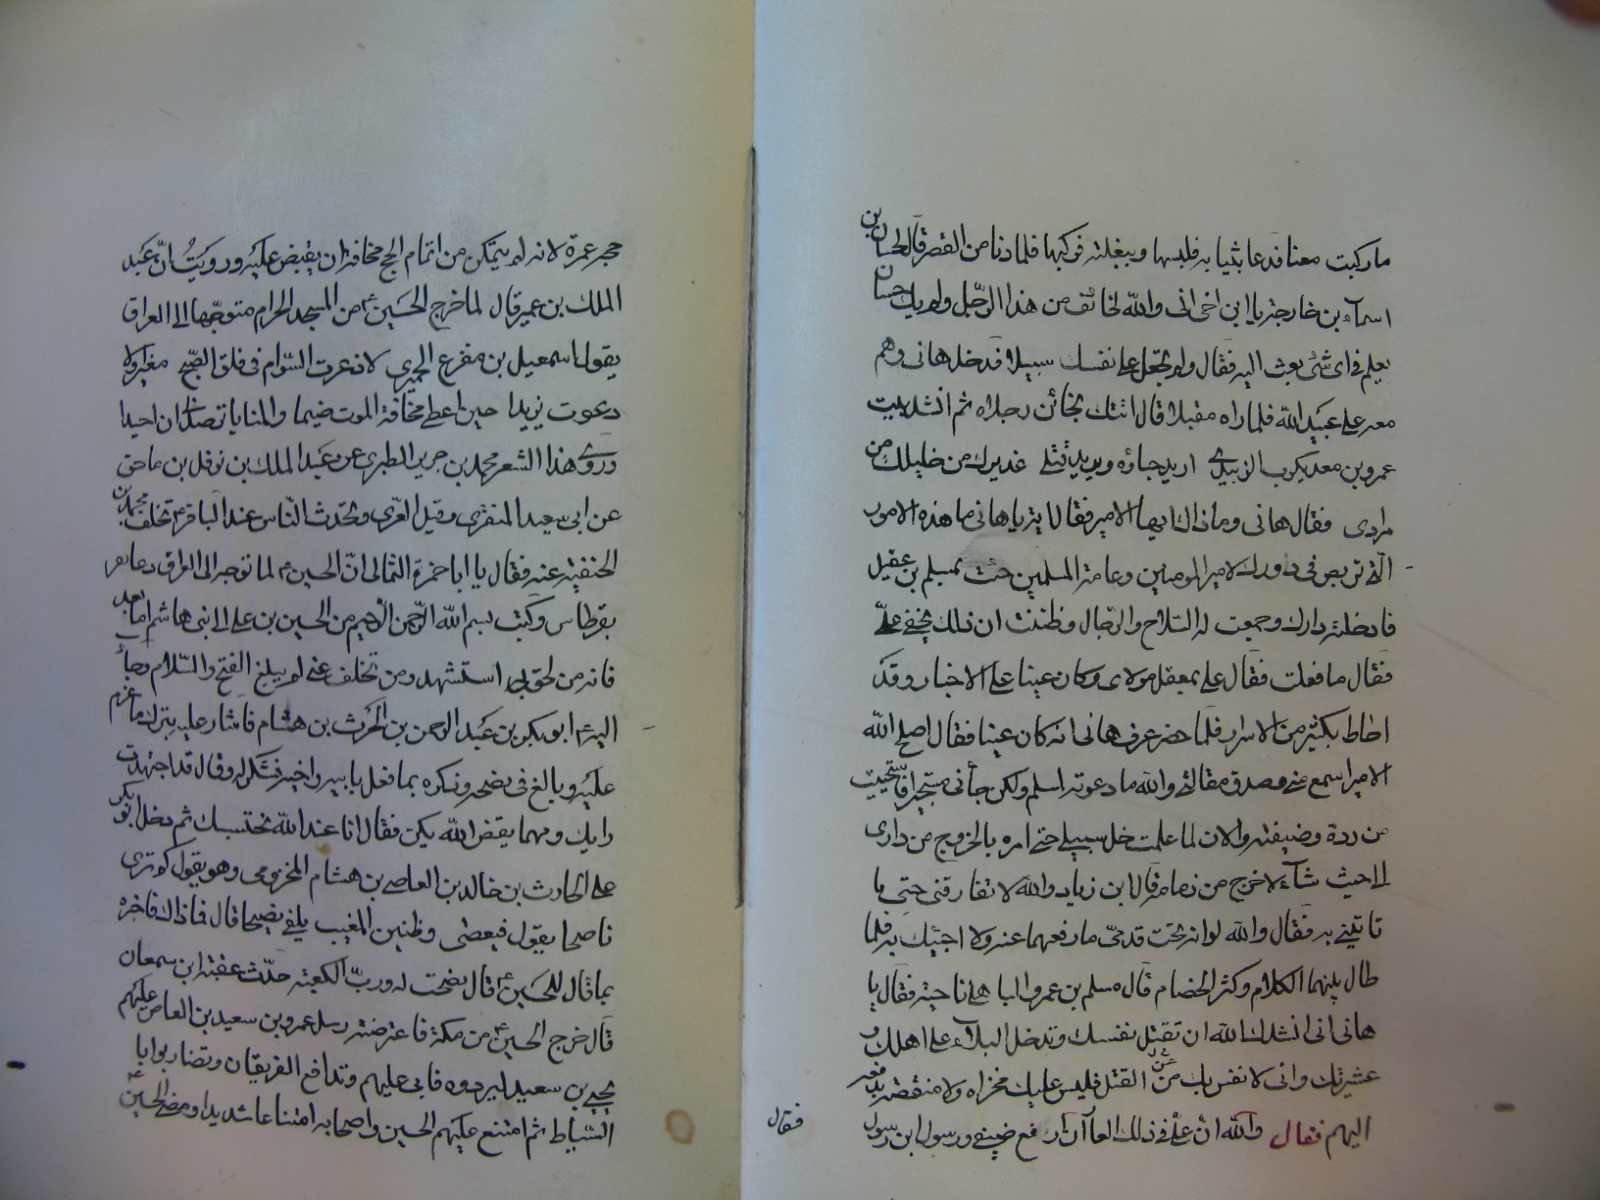 ما ركبت معنا فدعا بثيابه فلبسها وببغلته فركبها فلما دنا من القصر قال لحسان بن
اسماء بن خارجة يا ابن اخى انى والله لخائف من هذا الرجل ولم يك حسان
يعلم فى اى شئ بعث اليه فقال ولم تجعل على نفسك سبيلا فدخل هانى وهم
معه على عبيد الله فلما راه مقبلا قال اتتك بخائن رجلاه ثم انشد بيت
عمرو بن معد يكرب الزبيدى اريد حباؤه ويريد قتلى عذيرك من خليلك من
مرادى فقال هانى وما ذاك ايها الامير فقال ايه يا هانى ما هذه الامور
التى تربص فى دارك لامير المومنين وعامة المسلمين جئت بمسلم بن عقيل
فادخلته دارك وجمعت له السلاح والرجال وظننت ان ذلك يخفى على
فقال ما فعلت فقال على بمعقل مولاى وكان عينا على الاخبار وقد
احاط بكثير من الاسرار فلما حضر عرف هانى انه كان عينا فقال اصلح الله
الامير اسمع منى وصدق مقالتى والله ما دعوته اسلم ولكن جأنى مستجيرا فاستحييت
من رده وضيفته والان لما علمت خل سبيلى حتى امره بالخروج من دارى
الى حيث شآء لاخرج من ذمامه قال ابن زياد والله لا تفارقنى حتى
تاتينى به فقال والله لو انه تحت قدمى ما رفعهما عنه ولا اجيئك به فلما
طال بينهما الكلام وكثر الخصام قال مسلم بن عمرو الباهلى ناحية فقال يا
هانى انى انشدك الله ان تقتل نفسك وتدخل البلاء على اهلك و
عشيرتك وانى لانفس بك من القتل فليس عليك مخزاه ولا منقصة بدفعه
اليهم فقال والله ان على فى ذلك العار ان ادفع ضيفى ورسول ابن رسول
فقال
حجر عمرة لانه لم يتمكن من اتمام الحج مخافة ان يقبض عليه ورويت ان عبد
الملك بن عمير قال لما خرج الحسين ع من المسجد الحرام متوجها الى العراق
يقول اسمعيل بن مفرع الحميرى لا ذعرت السوام فى فلق الصبح مغيرا ولا
دعوت يزيدا حين اعطى مخافة الموت ضيما والمنايا ترصدنى ان احيدا
وروى هذا الشعر محمد بن جرير الطبرى عن عبد الملك بن نوفل بن ماحق
عن ابى سعيد المنقرى وقيل الغرى وتحدث الناس عند الباقر ع تخلف محمد بن
الحنفية عنه فقال يا ابا حمزة الثمالى ان الحسين ع لما توجه الى العراق دعا
بقرطاس وكتب بسم الله الرحمن الرحيم من الحسين بن على الى بنى هاشم اما بعد
فانه من لحق بى استشهد ومن تخلف عنى لم يبلغ الفتح والسلام وجاء
اليه ع ابو بكر بن عبد الرحمن بن الحرث بن هشام فاشار عليه بترك ما عزم
عليه وبالغ فى نصحه وذكره بما فعل بابيه واخيه فشكر له وقال قد اجتهدت
رايك ومهما يقض الله يكن فقال انا عند الله نحتسبك ثم دخل ابو بكر
على الحارث بن خالد بن العاصى بن هشام المخزومى وهو يقول كم ترى
ناصحا يقول فيعصى وظنين المغيب يلفى نصيحا قال فما ذاك فاخبره
بما قال للحسين ع قال نصحت له ورب الكعبة حدث عقبة ابن سمعان
قال خرج الحسين ع من مكة فاعترضته رسل عمرو بن سعيد بن العاص عليهم
يحيى بن سعيد ليردوه فابى عليهم وتدافع الفريقان وتضاربوا با
السياط ثم امتنع عليهم الحسين واصحابه امتناعا شديدا ومضى الحسين ع